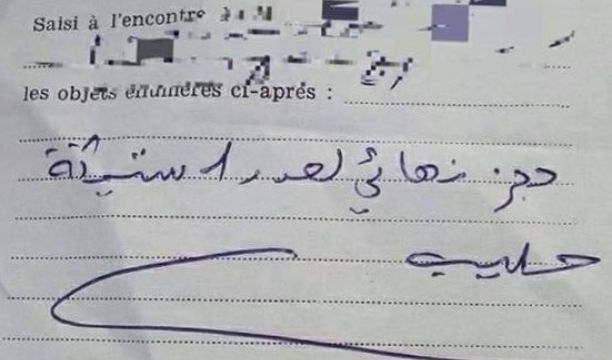 Saisi à l'encontre
les objets énumérés ci-après :
حجز نهائي لعدد 1 ستيكة
حليب